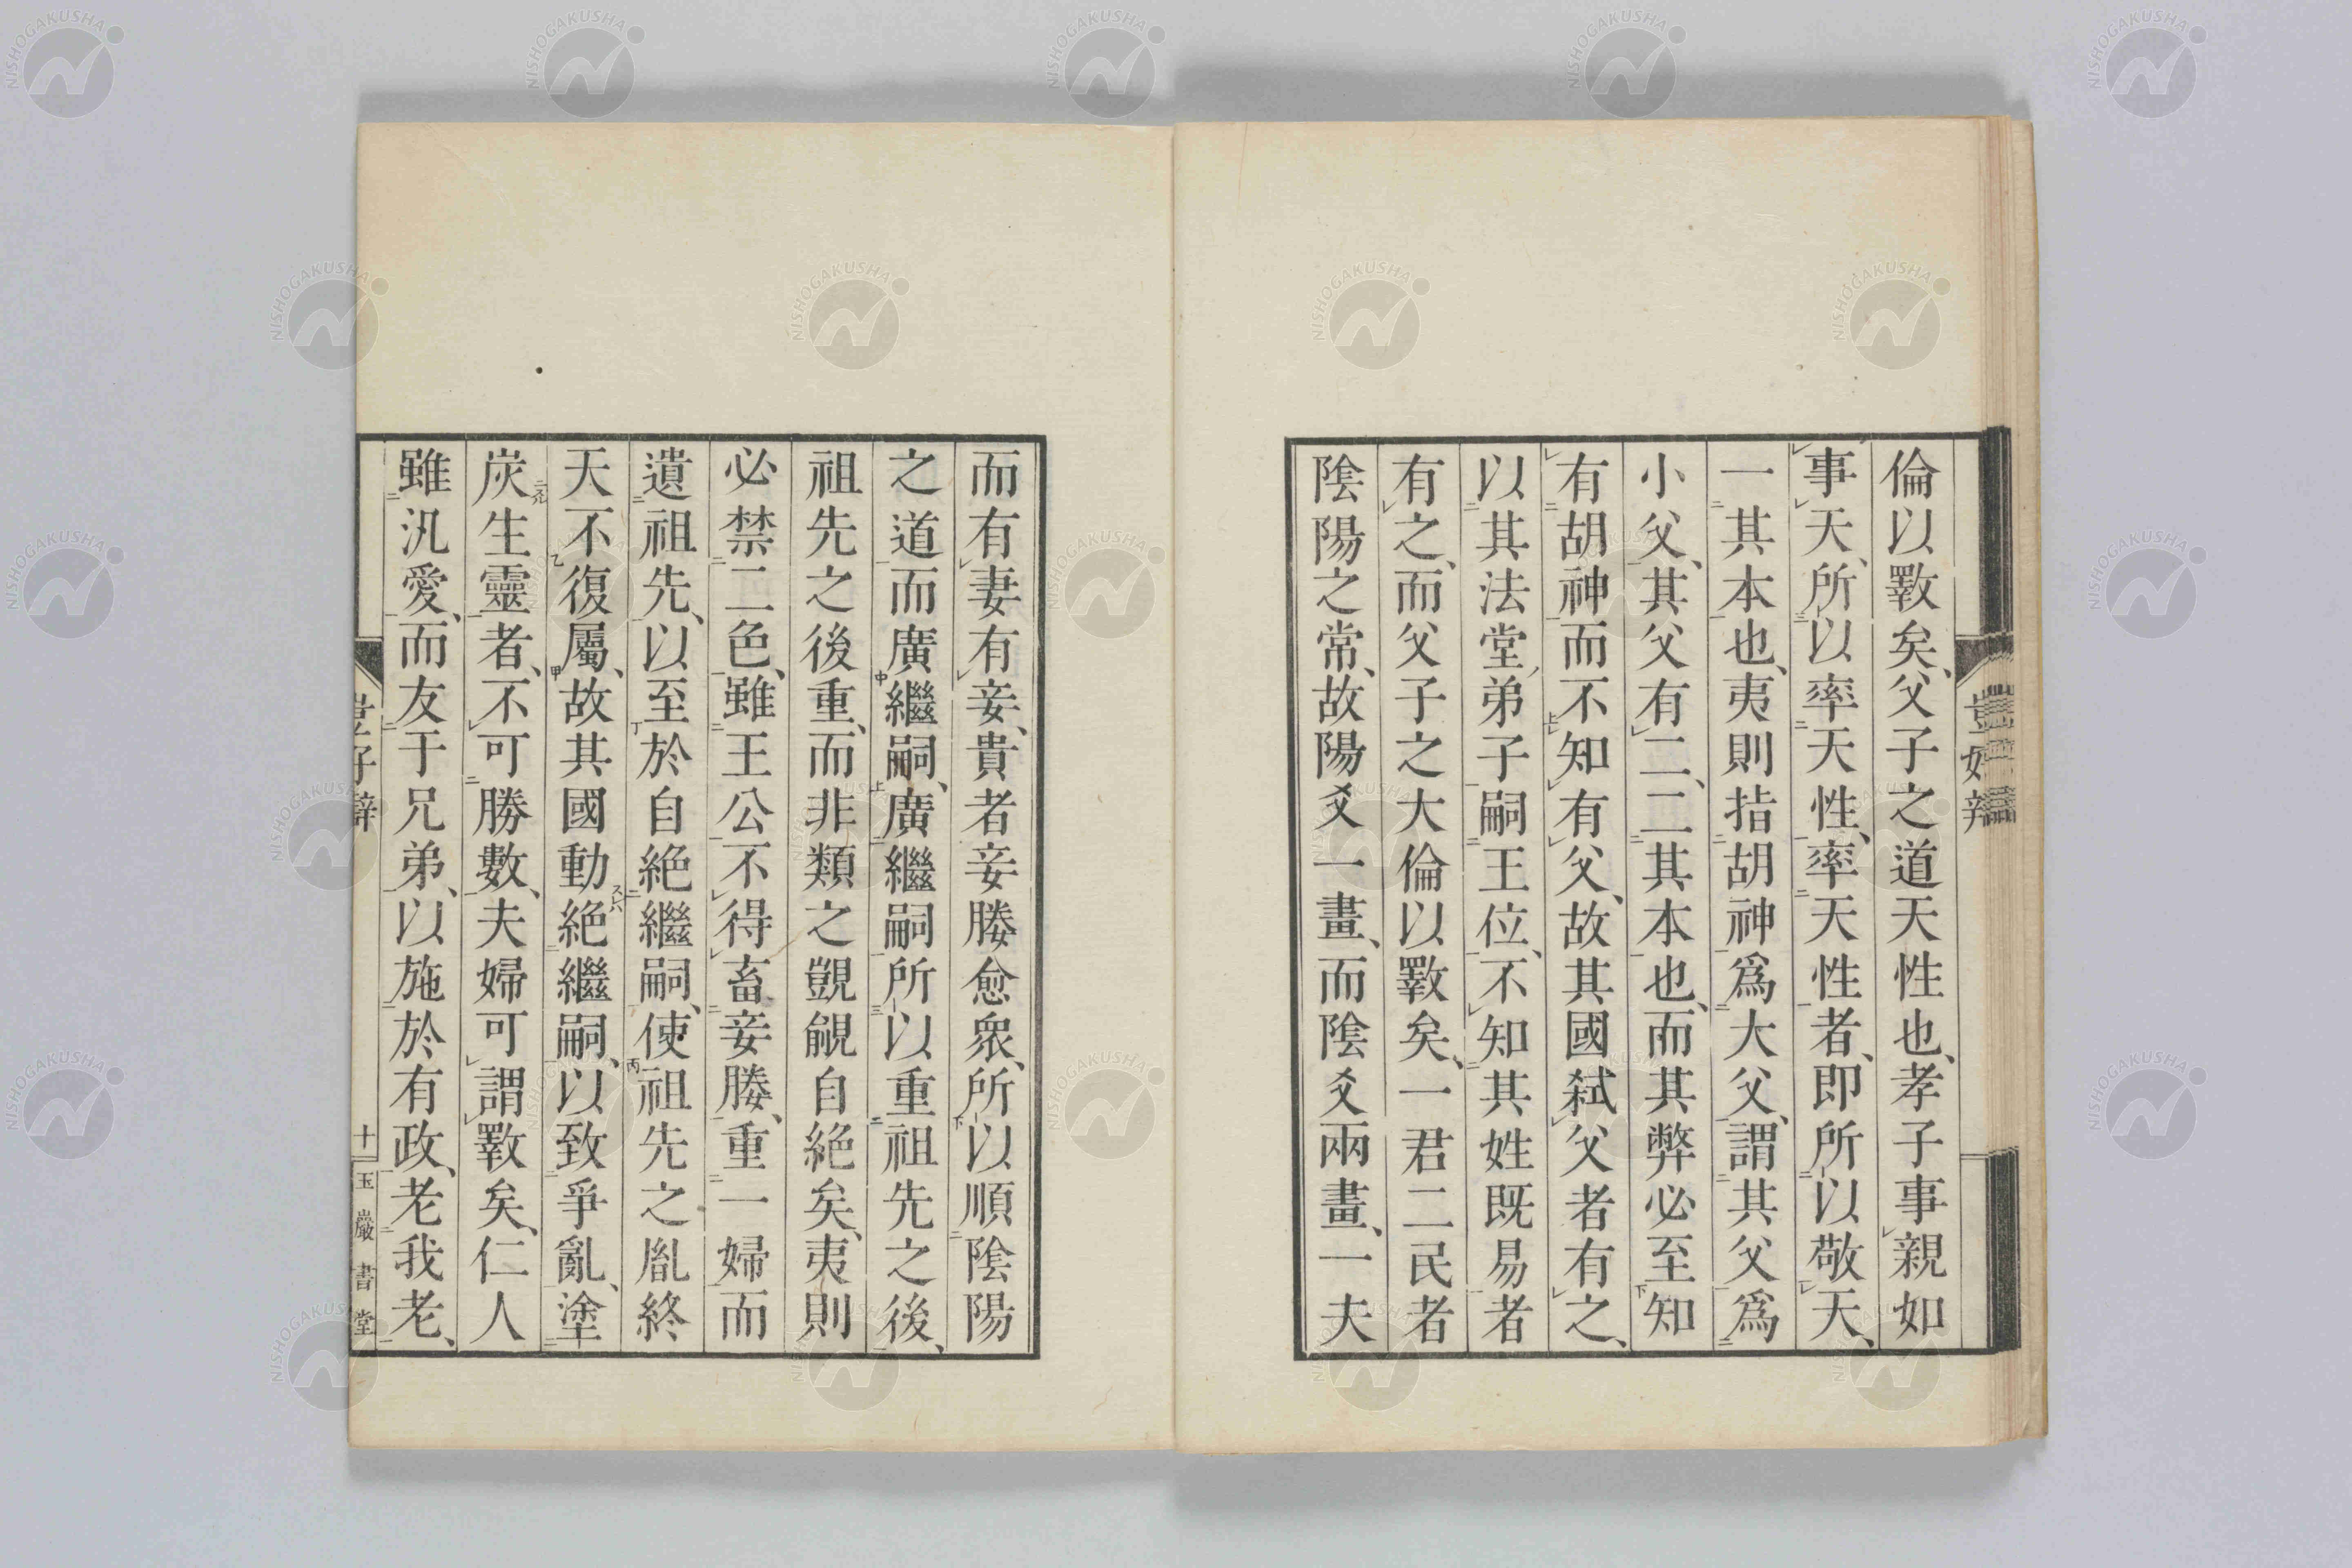 倫以斁矣、父子之道天性也、孝子事親如
事天、所以率天性、率天性者、即所以敬天、
一其本也、夷則指胡神爲大父、謂其父爲
小父、其父有二、二其本也、而其弊必至知
有胡神而不知有父、故其國弑父者有之、
以其法堂弟子嗣王位、不知其姓既易者
有之、而父子之大倫以斁矣、一君二民者
陰陽之常、故陽爻一畫、而陰爻兩畫、一夫
而有妻有妾、貴者妾媵愈衆、所以順陰陽
之道而廣繼嗣、廣繼嗣所以重祖先之後、
祖先之後重、而非類之覬覦自絶矣、夷則
必禁二色、雖王公不得畜妾媵、重一婦而
遺祖先、以至於自絶繼嗣、使祖先之胤終
天不復屬、故其國動絶繼嗣、以致爭亂、塗
炭生靈者、不可勝數、夫婦可謂斁矣、仁人
雖汎愛、而友于兄弟、以施於有政、老我老、
十
玉巖書堂
NISHOGAKUSHA